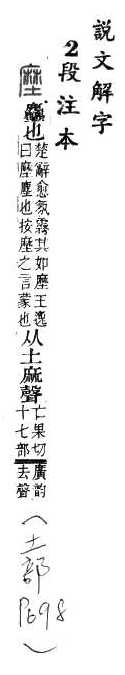 說文解字
2段注本
塺 塵也 楚辭愈氛霧其如塺王逸
曰塺塵也按塺之言蒙也
从土麻聲 亡果切廣韵
十七部去聲
(土部 P698)